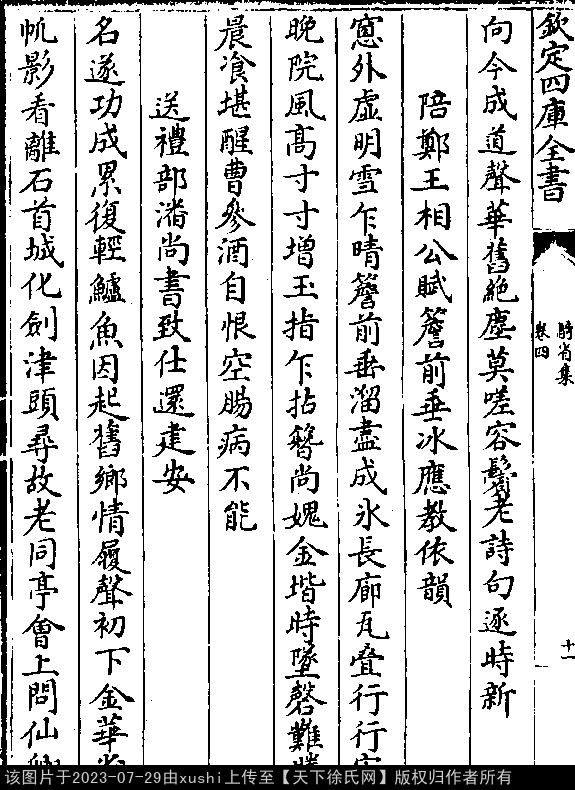 欽定四庫全書
騎省集
卷四
十一
向今成道聲華舊絶塵莫嗟容鬢老詩句逐時新
陪鄭王相公賦簷前垂冰應教依韻
窻外虛明雪乍晴簷前垂溜盡成氷長廊瓦疊行行
晚院風髙寸寸增玉指乍拈簪尚媿金堦時墜磬難
晨飡堪醒曹參酒自恨空腸病不能
送禮部潘尚書致仕還建安
名遂功成累復輕鱸魚因起舊鄉情履聲初下金華
帆影看離石首城化劍津頭尋故老同亭會上問仙
该图片于2023-07-29由xushi上传至【天下徐氏网】版权归作者所有